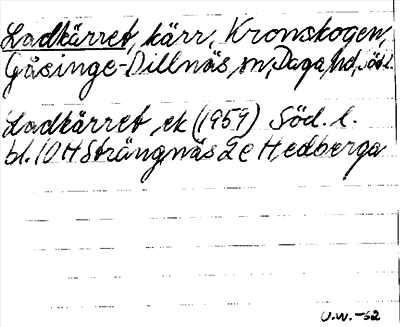 Ladkärret, kärr, Kronskogen,
Gåsinge-Dillnäs, sn, Daga, hd, Söd. l.
Ladkärret, ek (1959) Söd. l.
bl. 10 H Strängnäs 2 e Hedberga
U.W. -62